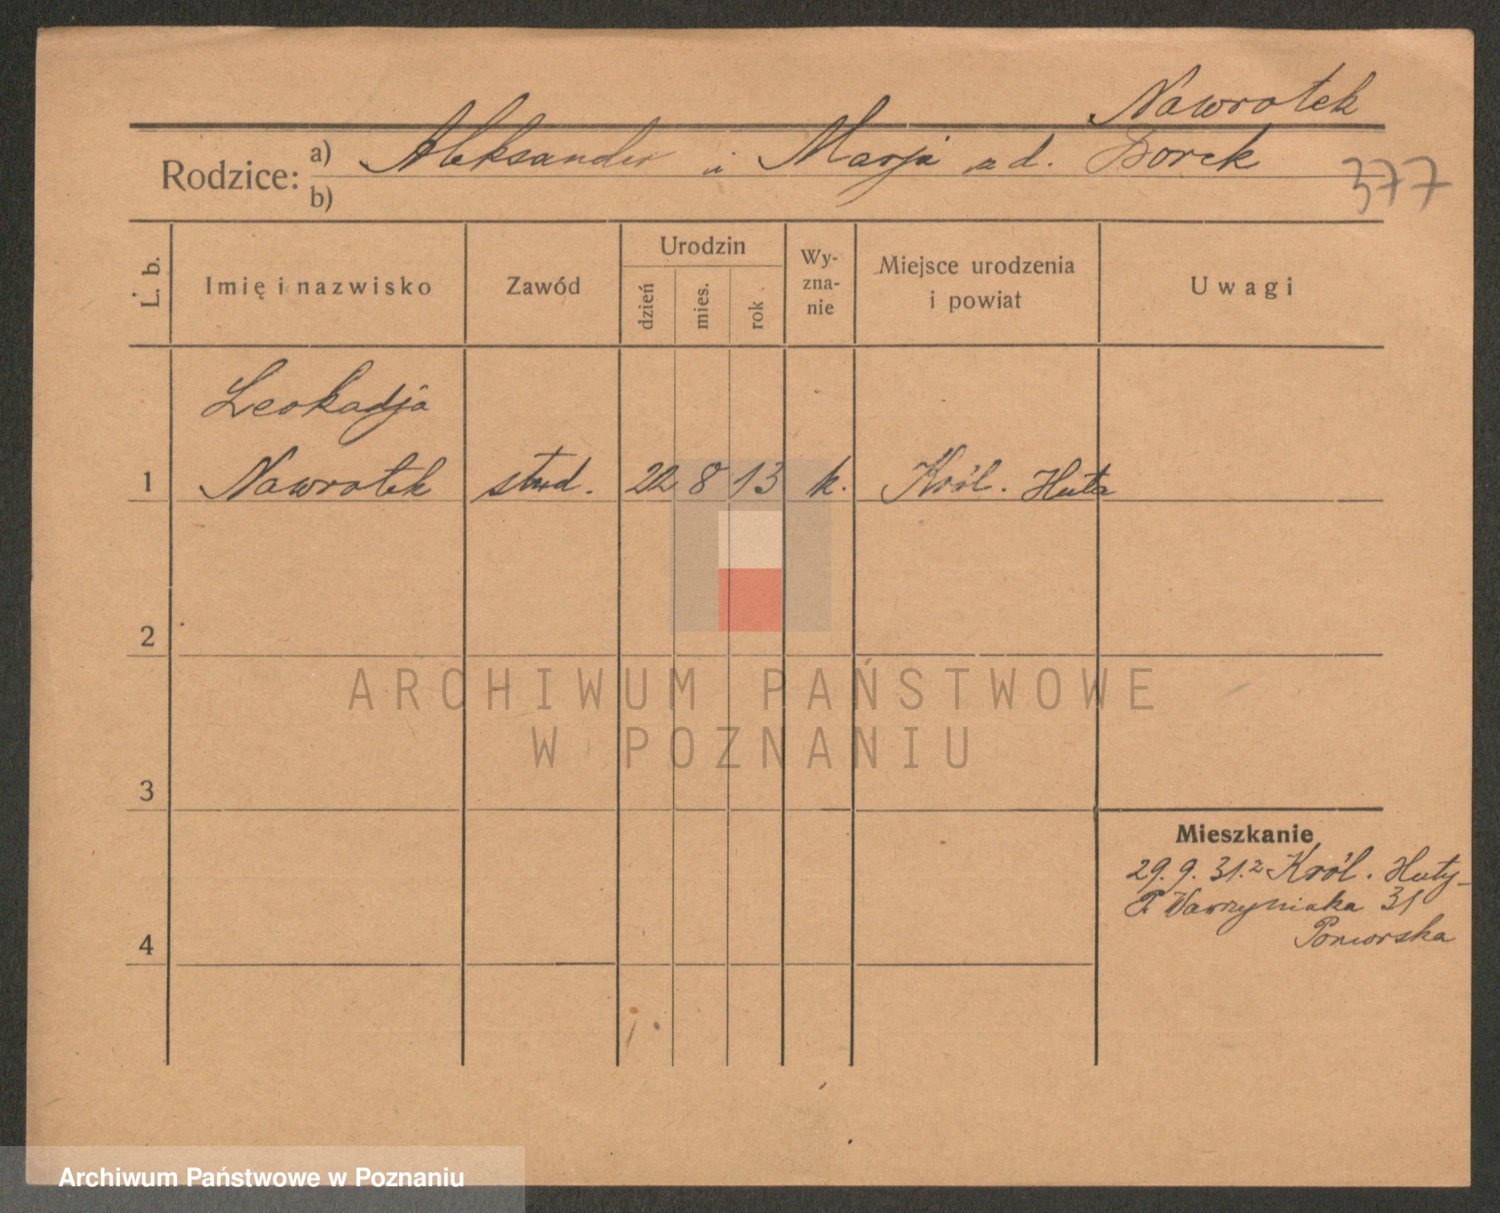 Nawrotek
Rodzice: a) Aleksander i Marja z d. Borek
b)
377
L. b.
Imię i nazwisko
Zawód
Urodzin
dzień
mies.
rok
Wy-
zna-
nie
Miejsce urodzenia
i powiat
Uwagi
Leokadja
1 Nawrotek stud. 22 8 13 k. Król. Huta
2
ARCHIWUM PAŃSTWOWE
W POZNANIU
3
Mieszkanie
29. 9. 31. z Król. Huty-
Wawrzyniaka 31
4
Pomorska
Archiwum Państwowe w Poznaniu